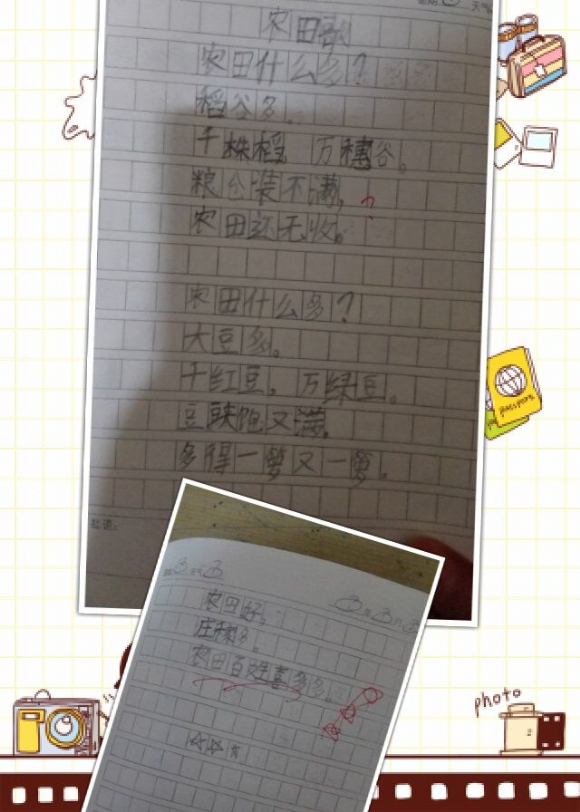 农田歌
农田什么多?
稻谷多。
千株稻 万穗谷。
粮仓装不满,
农田还无收。
农田什么多?
大豆多。
千红豆,万绿豆。
豆荚饱又满,
多得一箩又一箩。
批语:
农田好,
庄稼多。
农田百姓喜多多。
passport
photo